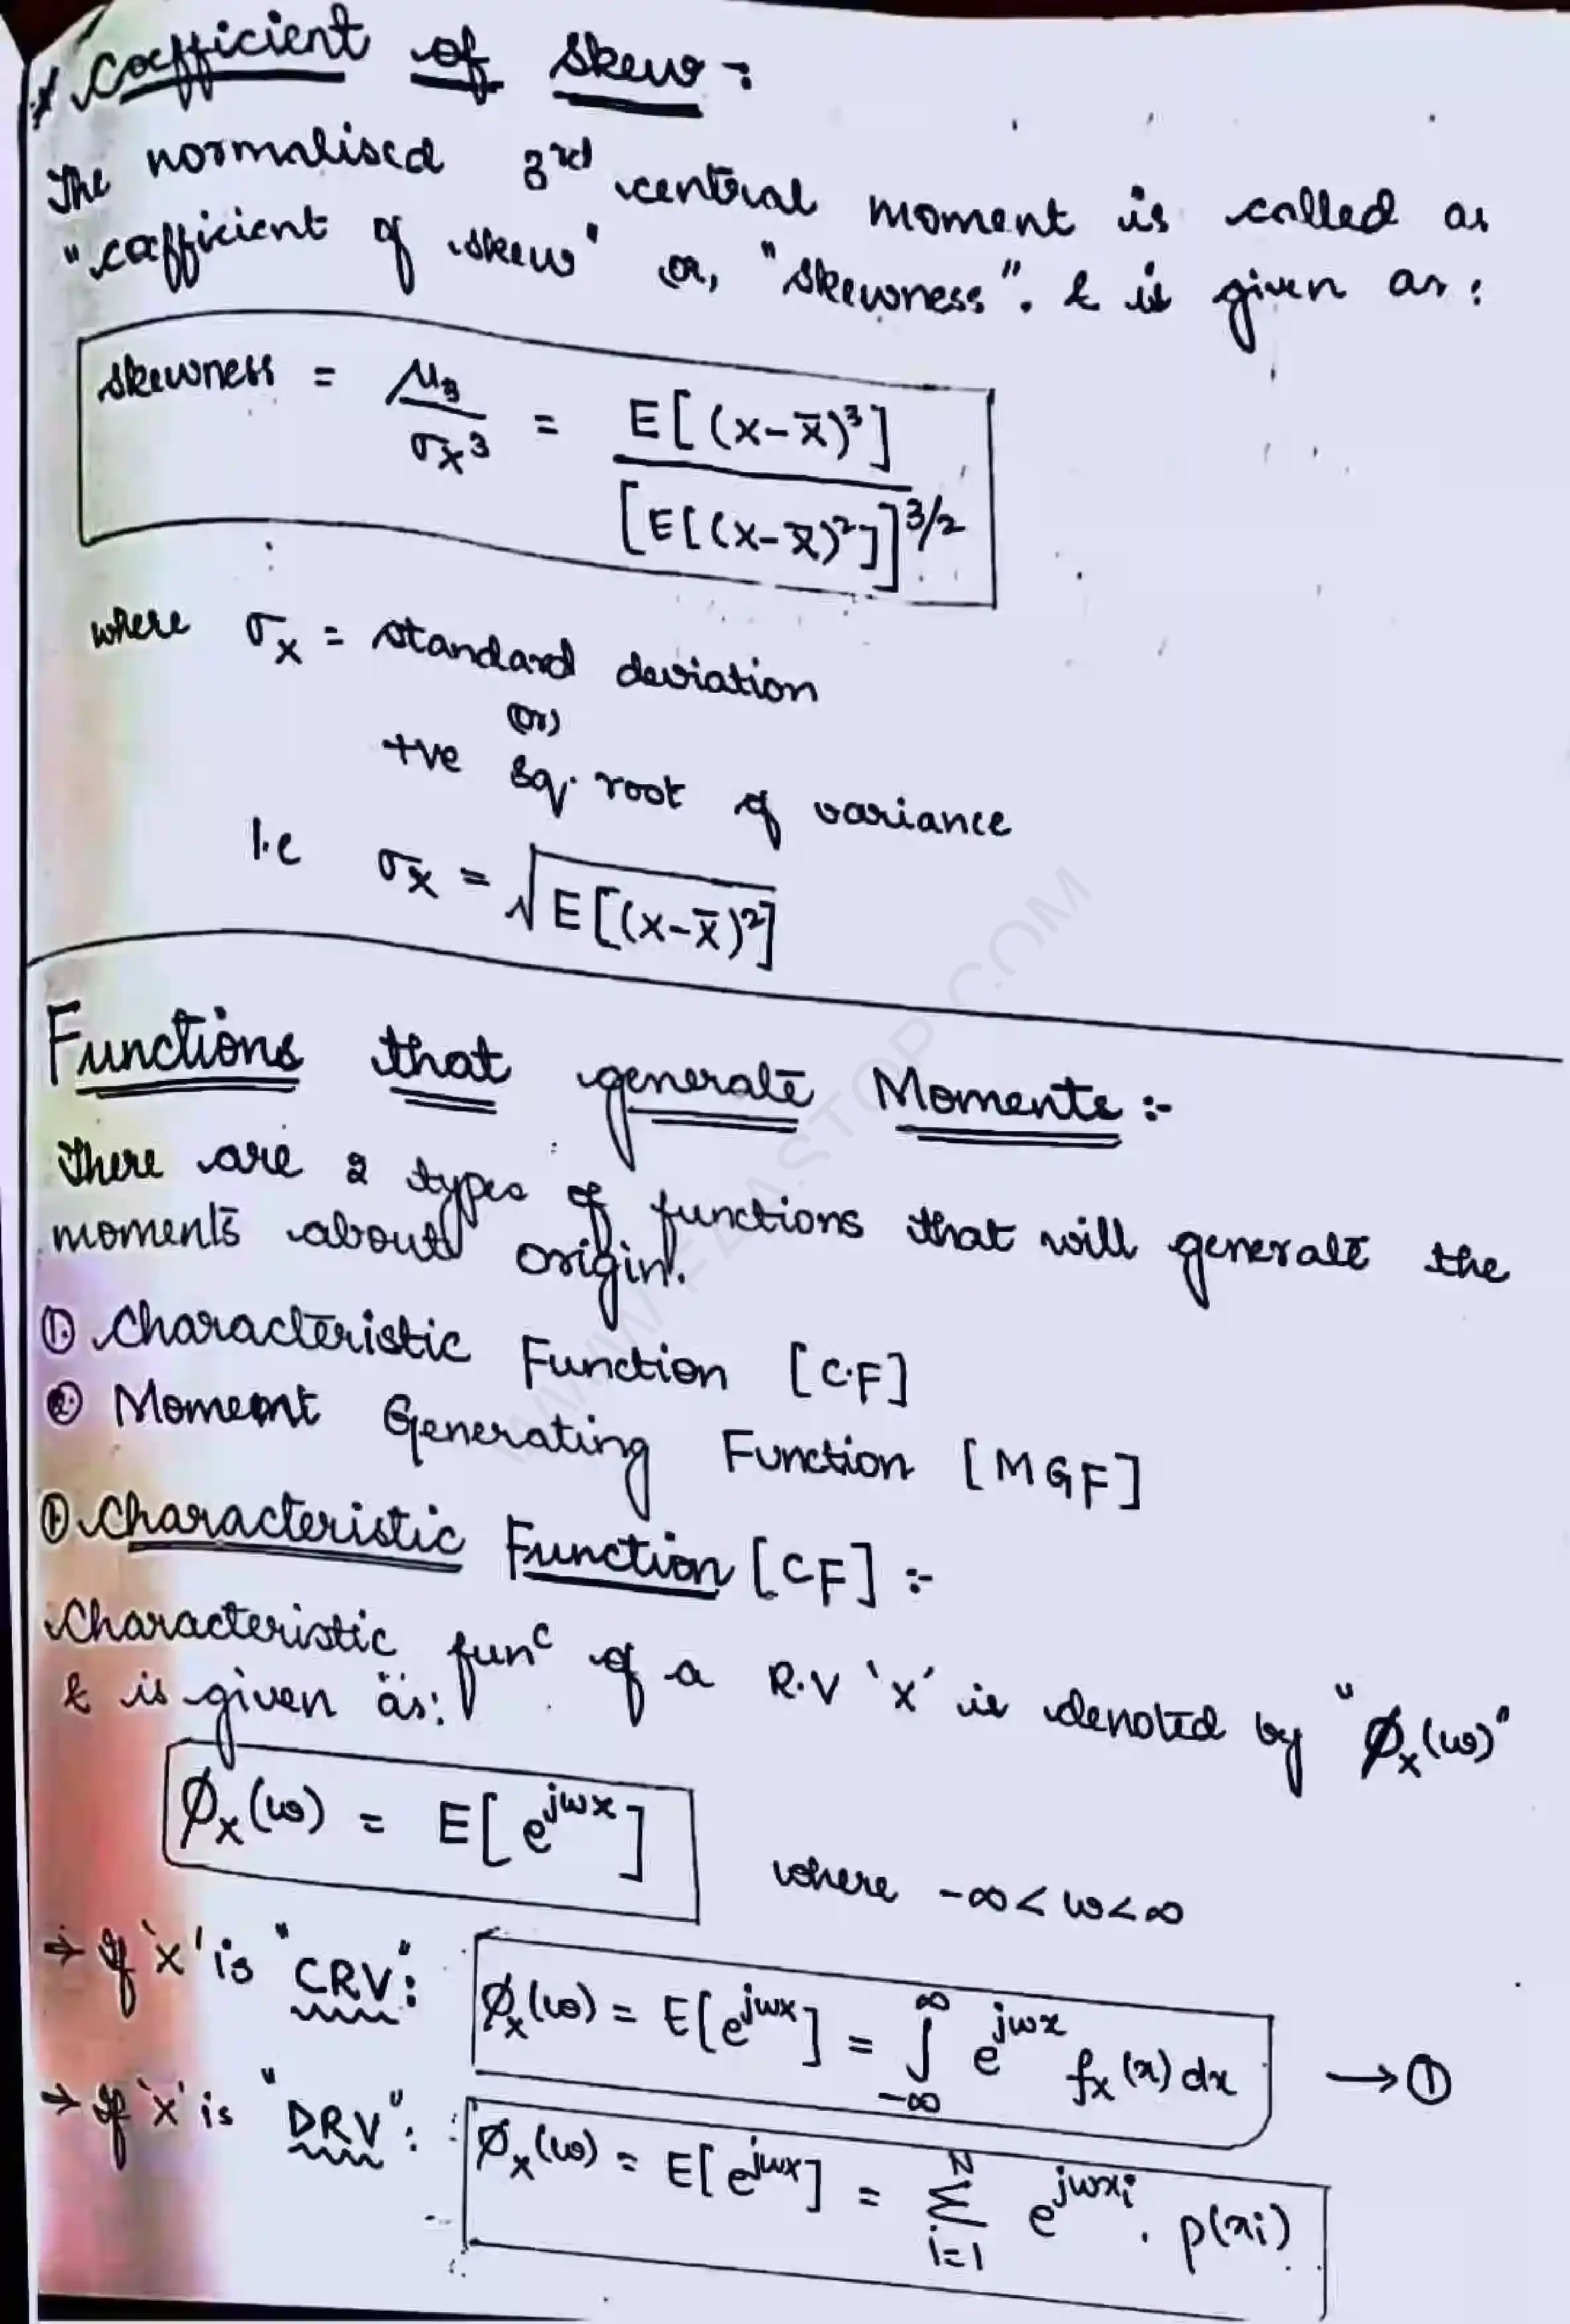 * Coefficient of Skew :
The normalised 3rd central moment is called as
"coefficient of skew" or, "Skewness". & is given as :
skewness = μ₃ / σₓ³ = E[(x-x̄)³] / [E[(x-x̄)²]]^3/2
where σₓ = standard deviation
(or)
+ve sq. root of variance
i.e σₓ = √E[(x-x̄)²]
Functions that generate Moments :-
There are 2 types of functions that will generate the
moments about origin.
①. Characteristic Function [C.F]
②. Moment Generating Function [MGF]
①. Characteristic Function [CF] :-
Characteristic funᶜ of a R.V 'x' is denoted by "Øₓ(ω)"
& is given as:
Øₓ(ω) = E[e^jωx] where -∞ < ω < ∞
→ If 'x' is "CRV": Øₓ(ω) = E[e^jωx] = ∫_{-∞}^{∞} e^jωx fₓ(x) dx → ①
→ If 'x' is "DRV": Øₓ(ω) = E[e^jωx] = Σ_{i=1}^{N} e^jωxᵢ . p(xᵢ)